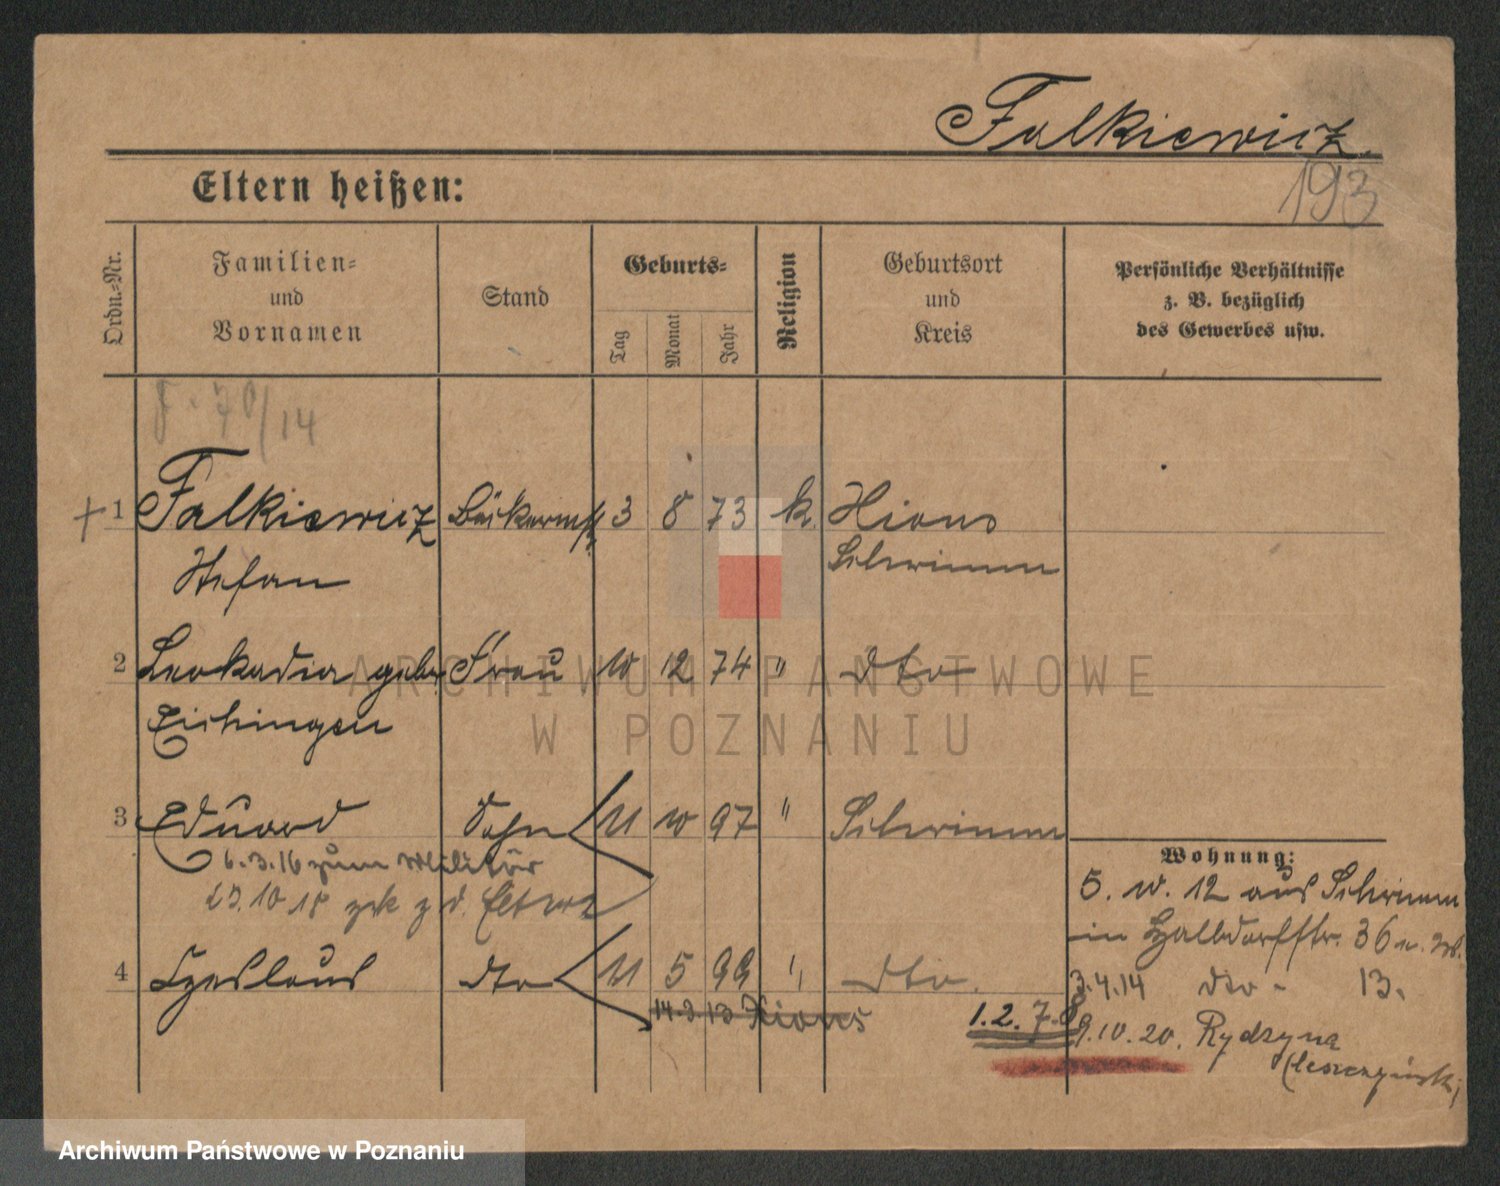 Falkiewicz.
Eltern heißen:
193
Ordn.-Nr.
Familien-
und
Vornamen
Stand
Geburts-
Tag
Monat
Jahr
Religion
Geburtsort
und
Kreis
Persönliche Verhältnisse
z. B. bezüglich
des Gewerbes usw.
70/14
+ 1 Falkiewicz Bäckermstr 3 8 73 k. Xions
Stefan Schrimm
2 Leokadia geb. Frau 10 12 74 " dto
3 Eduard Sohn 11 10 97 " Schrimm
6.3.16 zum Militär
23.10.18 zrk z. d. Eltern
4 Czeslaus dto 11 5 99 " dto.
Xions
Wohnung:
5. 10. 12 aus Schrimm
in Halbdorfstr. 36
3.4.14 dto - 13.
1.2.7.8
9.10.20. Rydzyna
ARCHIWUM PAŃSTWOWE
W POZNANIU
Archiwum Państwowe w Poznaniu